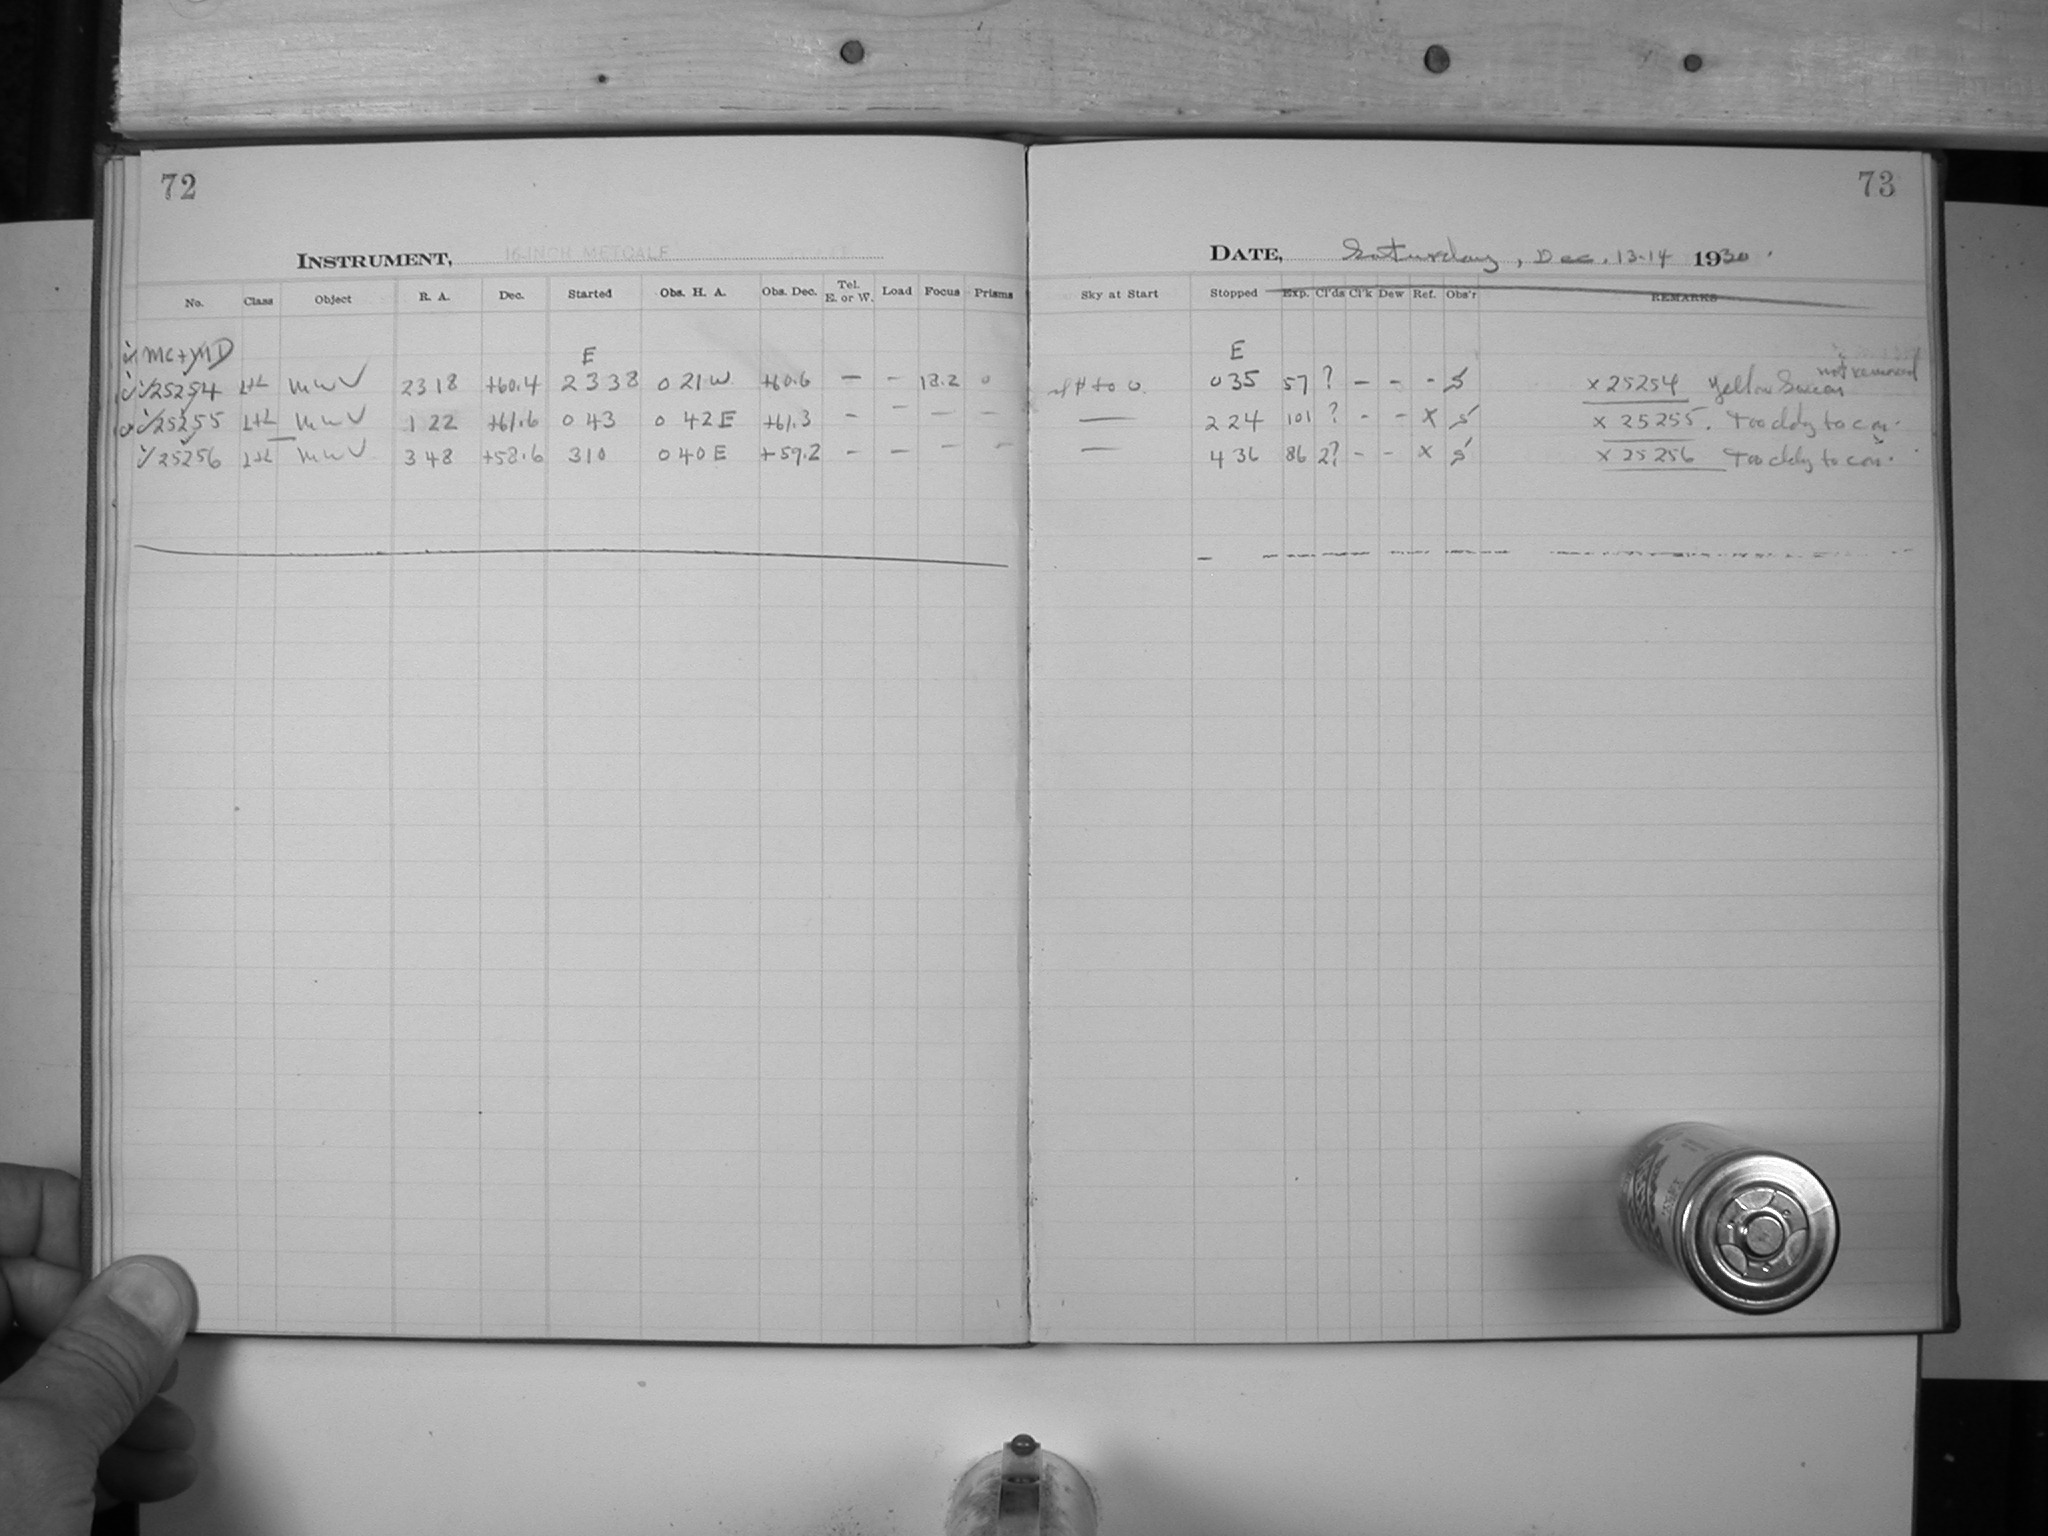 72
INSTRUMENT, 16 INCH METCALF
No. Class Object R. A. Dec. Started Obs. H. A. Obs. Dec. Tel. E. or W. Load Focus Prisms
MC+MD E
25254 L+L MWV 23 18 +60.4 23 38 0 21 W +60.6 — - 18.2 0
25255 L+L MWV 1 22 +61.6 0 43 0 42 E +61.3 - - — —
25256 L+L MWV 3 48 +58.6 3 10 0 40 E +59.2 - - - -
73
DATE, Saturday, Dec. 13-14 1930.
Sky at Start Stopped Exp. Cl'ds Cl'k Dew Ref. Obs'r REMARKS
E
to 0 0 35 57 ? - - - S x 25254 Yellow not removed
— 2 24 101 ? - - x S x 25255. Too cldy to con.
— 4 36 86 2? - - x S x 25256 Too cldy to con.